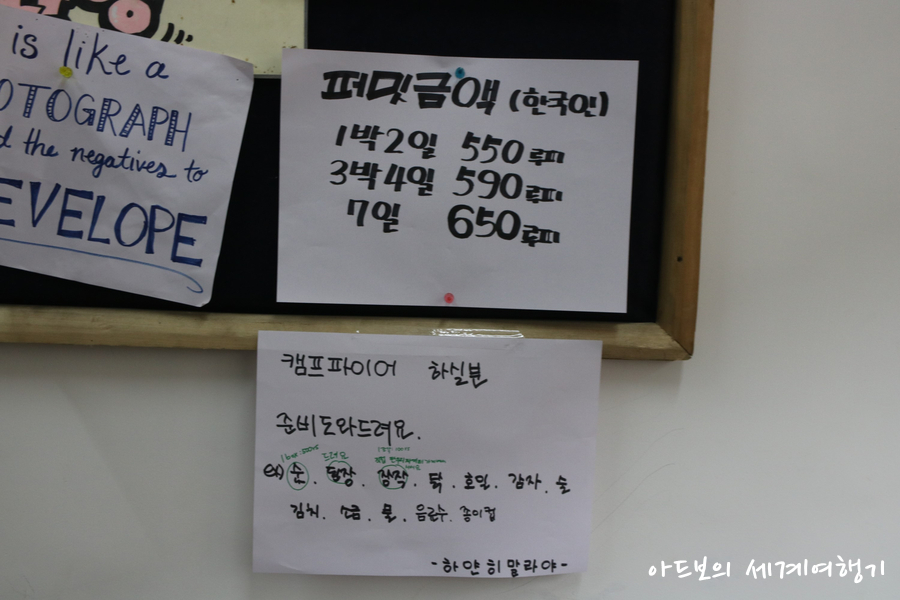 is like a
OTOGRAPH
d the negatives to
EVELOPE
퍼밋금액 (한국인)
1박2일 550루피
3박4일 590루피
7일 650루피
캠프파이어 하실분
준비도와드려요.
드려요
ex) 숯. 장작. 닭. 호일. 감자. 술
김치. 소금. 물. 음료수. 종이컵
-하얀히말라야-
아드보의 세계여행기